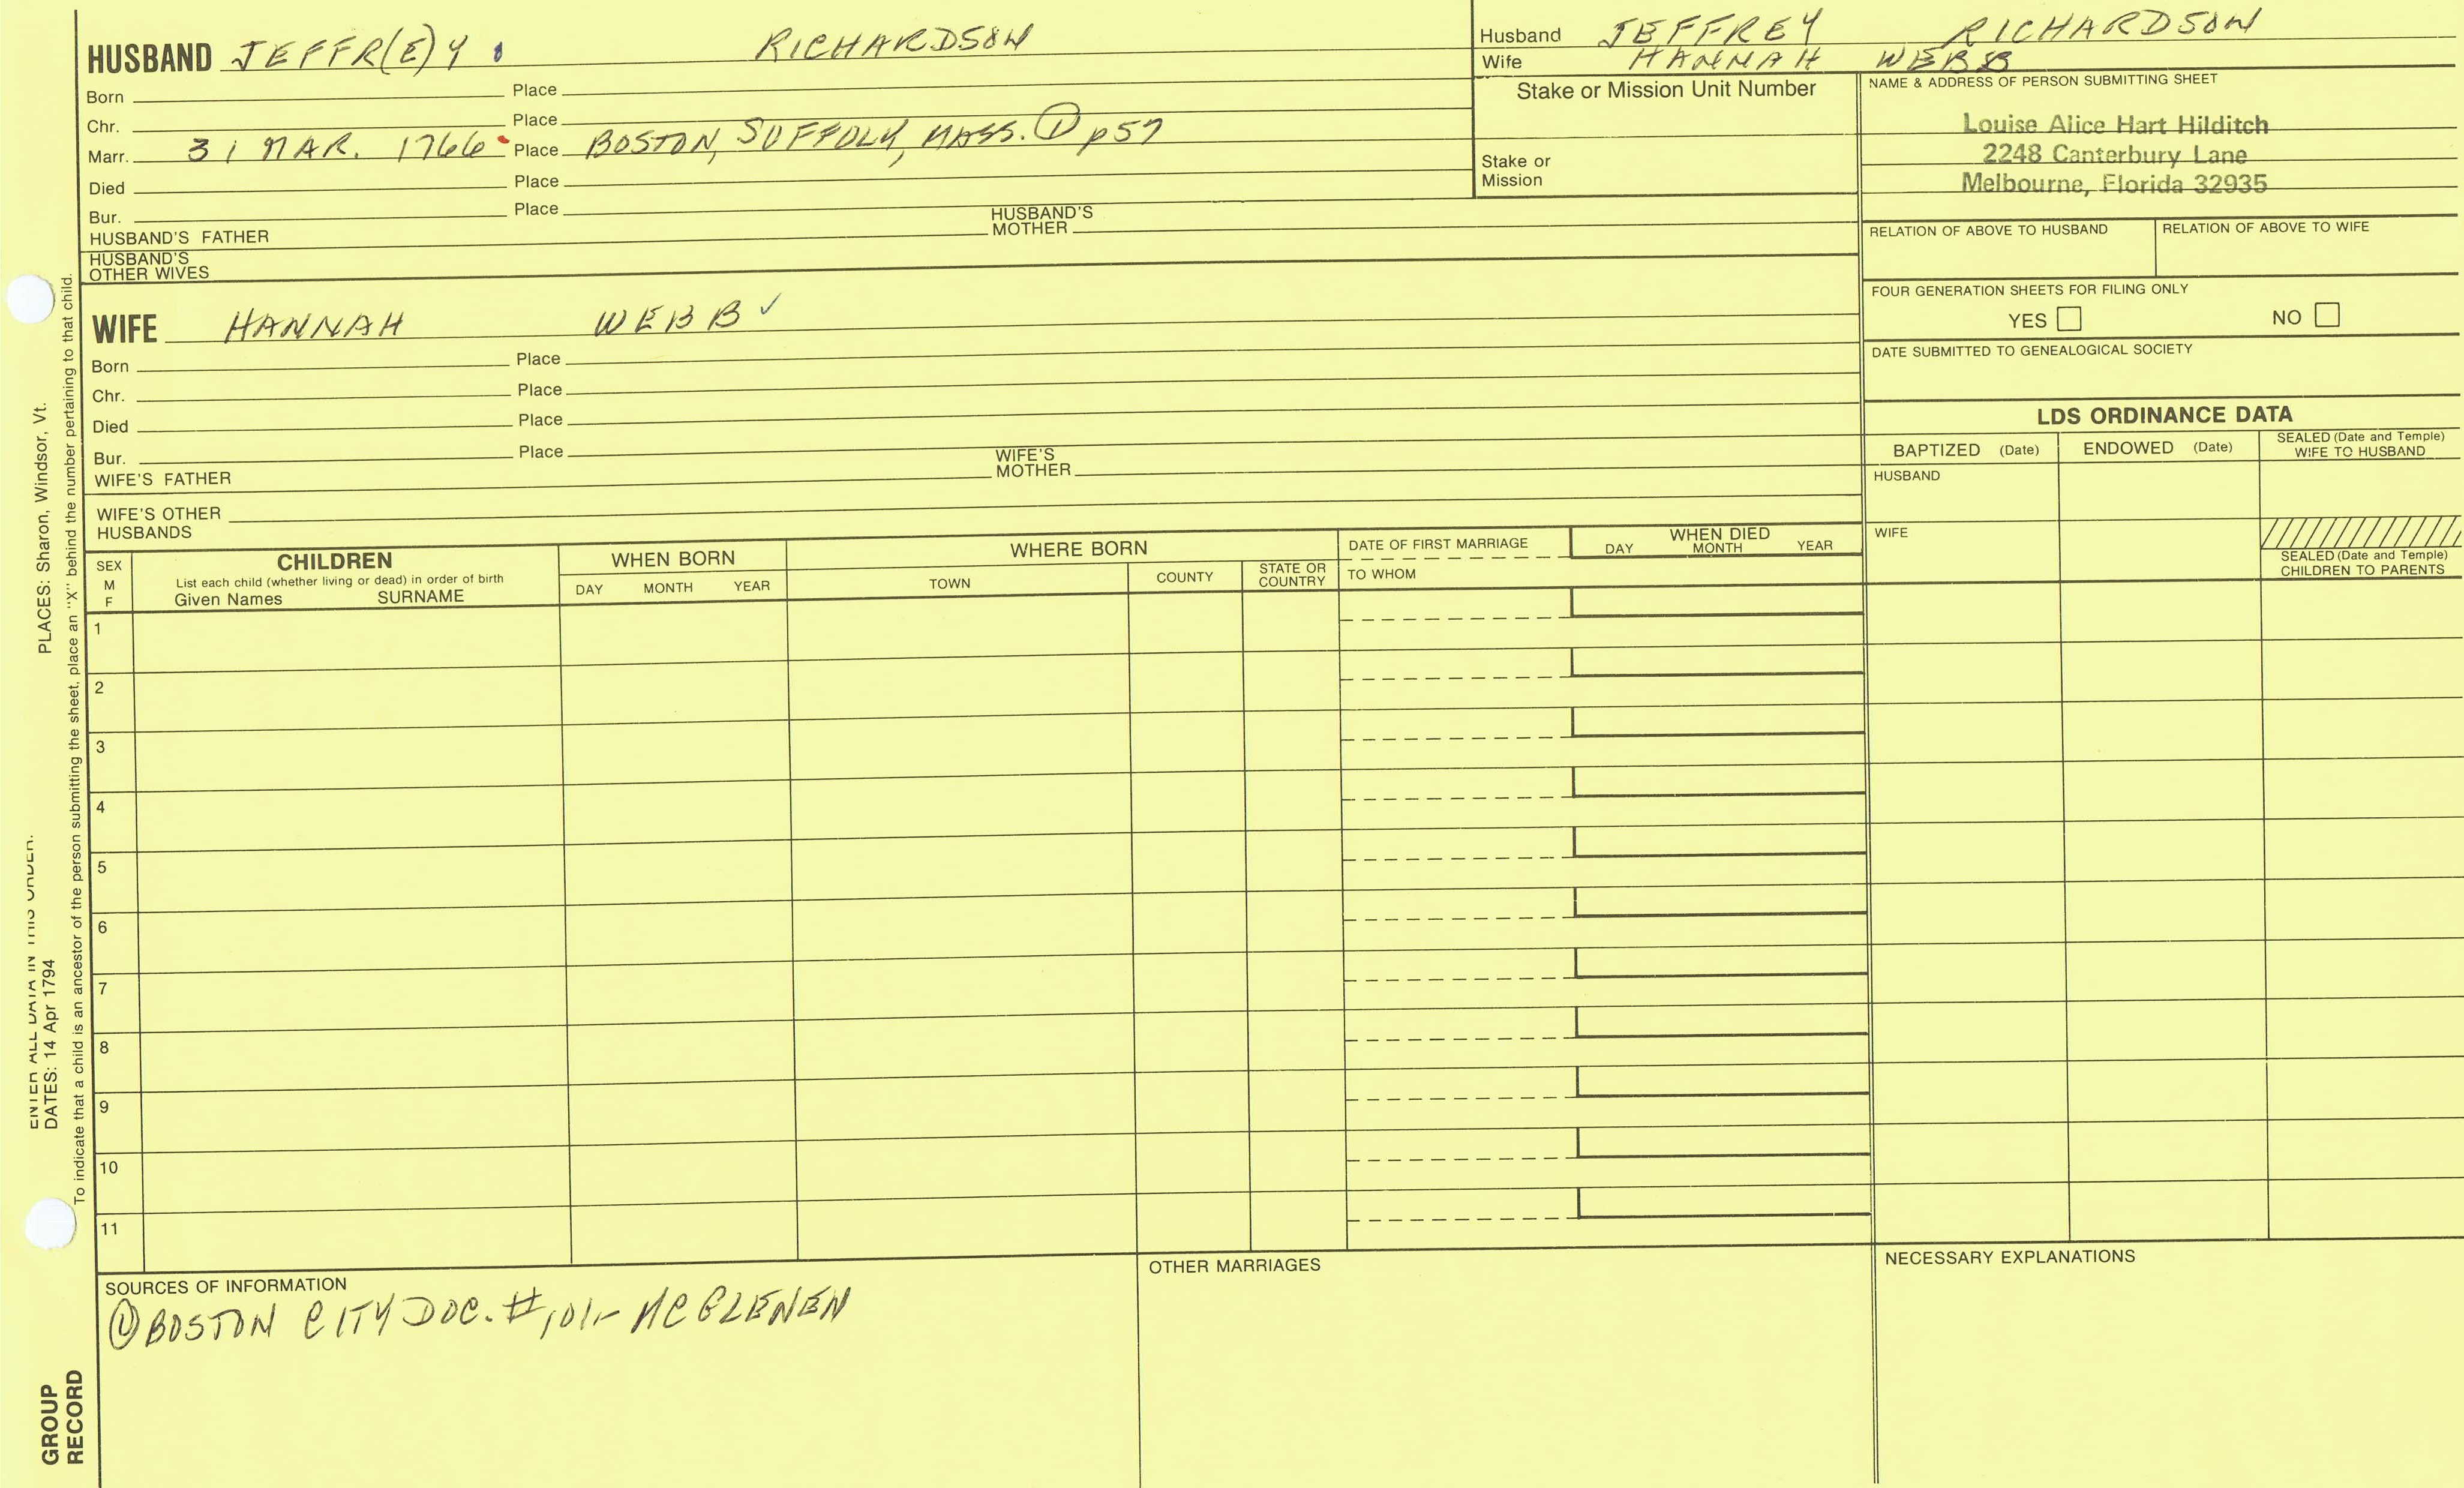 HUSBAND JEFFR(E)Y RICHARDSON
Born Place
Chr. Place
Marr. 31 MAR. 1766 Place BOSTON, SUFFOLK, MASS. ① p57
Died Place
Bur. Place
HUSBAND'S FATHER HUSBAND'S MOTHER
HUSBAND'S OTHER WIVES
WIFE HANNAH WEBB ✓
Born Place
Chr. Place
Died Place
Bur. Place
WIFE'S FATHER WIFE'S MOTHER
WIFE'S OTHER HUSBANDS
Husband JEFFREY RICHARDSON
Wife HANNAH WEBB
Stake or Mission Unit Number
Stake or Mission
NAME & ADDRESS OF PERSON SUBMITTING SHEET
Louise Alice Hart Hilditch
2248 Canterbury Lane
Melbourne, Florida 32935
RELATION OF ABOVE TO HUSBAND RELATION OF ABOVE TO WIFE
FOUR GENERATION SHEETS FOR FILING ONLY
YES NO
DATE SUBMITTED TO GENEALOGICAL SOCIETY
LDS ORDINANCE DATA
BAPTIZED (Date) ENDOWED (Date) SEALED (Date and Temple) WIFE TO HUSBAND
HUSBAND
WIFE
SEALED (Date and Temple) CHILDREN TO PARENTS
SEX M F
CHILDREN
List each child (whether living or dead) in order of birth
Given Names SURNAME
WHEN BORN
DAY MONTH YEAR
WHERE BORN
TOWN COUNTY STATE OR COUNTRY
DATE OF FIRST MARRIAGE
TO WHOM
WHEN DIED
DAY MONTH YEAR
1
2
3
4
5
6
7
8
9
10
11
SOURCES OF INFORMATION
① BOSTON CITY DOC. #101- MCGLENEN
OTHER MARRIAGES
NECESSARY EXPLANATIONS
ENTER ALL DATA IN THIS ORDER.
DATES: 14 Apr 1794 PLACES: Sharon, Windsor, Vt.
To indicate that a child is an ancestor of the person submitting the sheet, place an "X" behind the number pertaining to that child.
GROUP
RECORD